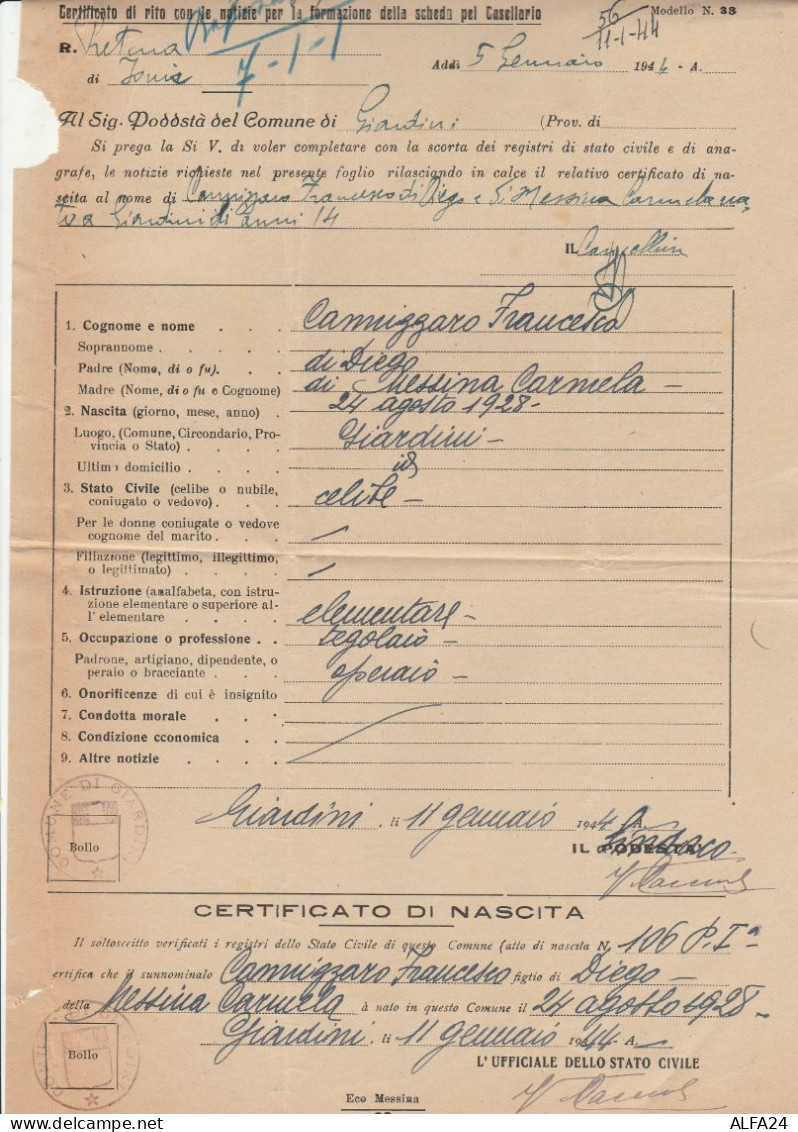 Certificato di rito con le notizie per la formazione della scheda pel Casellario
Modello N. 33
56
11-1-44
R. Pretura
7-1-
di
Addì 5 Gennaio 1944 - A.
Al Sig. Poddstà del Comune di Giardini (Prov. di
Si prega la Si V. di voler completare con la scorta dei registri di stato civile e di ana-
grafe, le notizie richieste nel presente foglio rilasciando in calce il relativo certificato di na-
scita al nome di Cannizzaro Francesco di Diego e di Messina Carmela na
to a Giardini di anni 14
IL Cancelliere
1. Cognome e nome . . . Cannizzaro Francesco
Soprannome . . . .
Padre (Nome, di o fu). . . di Diego
Madre (Nome, di o fu e Cognome) di Messina Carmela -
2. Nascita (giorno, mese, anno) . 24 agosto 1928 -
Luogo, (Comune, Circondario, Pro-
vincia o Stato) . . . . Giardini -
Ultimo domicilio . . . . id
3. Stato Civile (celibe o nubile,
coniugato o vedovo) . . . celibe -
Per le donne coniugate o vedove
cognome del marito . . . /
Filiazione (legittimo, illegittimo,
o legittimato) . . . . /
4. Istruzione (analfabeta, con istru-
zione elementare o superiore al-
l' elementare . . . . elementare -
5. Occupazione o professione . . tegolaio -
Padrone, artigiano, dipendente, o
peraio o bracciante . . . operaio -
6. Onorificenze di cui è insignito
7. Condotta morale . . .
8. Condizione cconomica . . .
9. Altre notizie . . . .
COMUNE DI GIARDINI
Bollo
Giardini, li 11 gennaio 1944 - A.
IL PODESTA'
Sindaco
CERTIFICATO DI NASCITA
Il soltoscritto verificati i registri dello Stato Civile di questo Comnne (atto di nascita N. 106 P. Iª
certifica che il sunnominalo Cannizzaro Francesco figtio di Diego -
della Messina Carmela à nato in questo Comune il 24 agosto 1928 -
Giardini, li 11 gennaio 1944 - A -
Bollo
L'UFFICIALE DELLO STATO CIVILE
Eco Messina
ALFA24